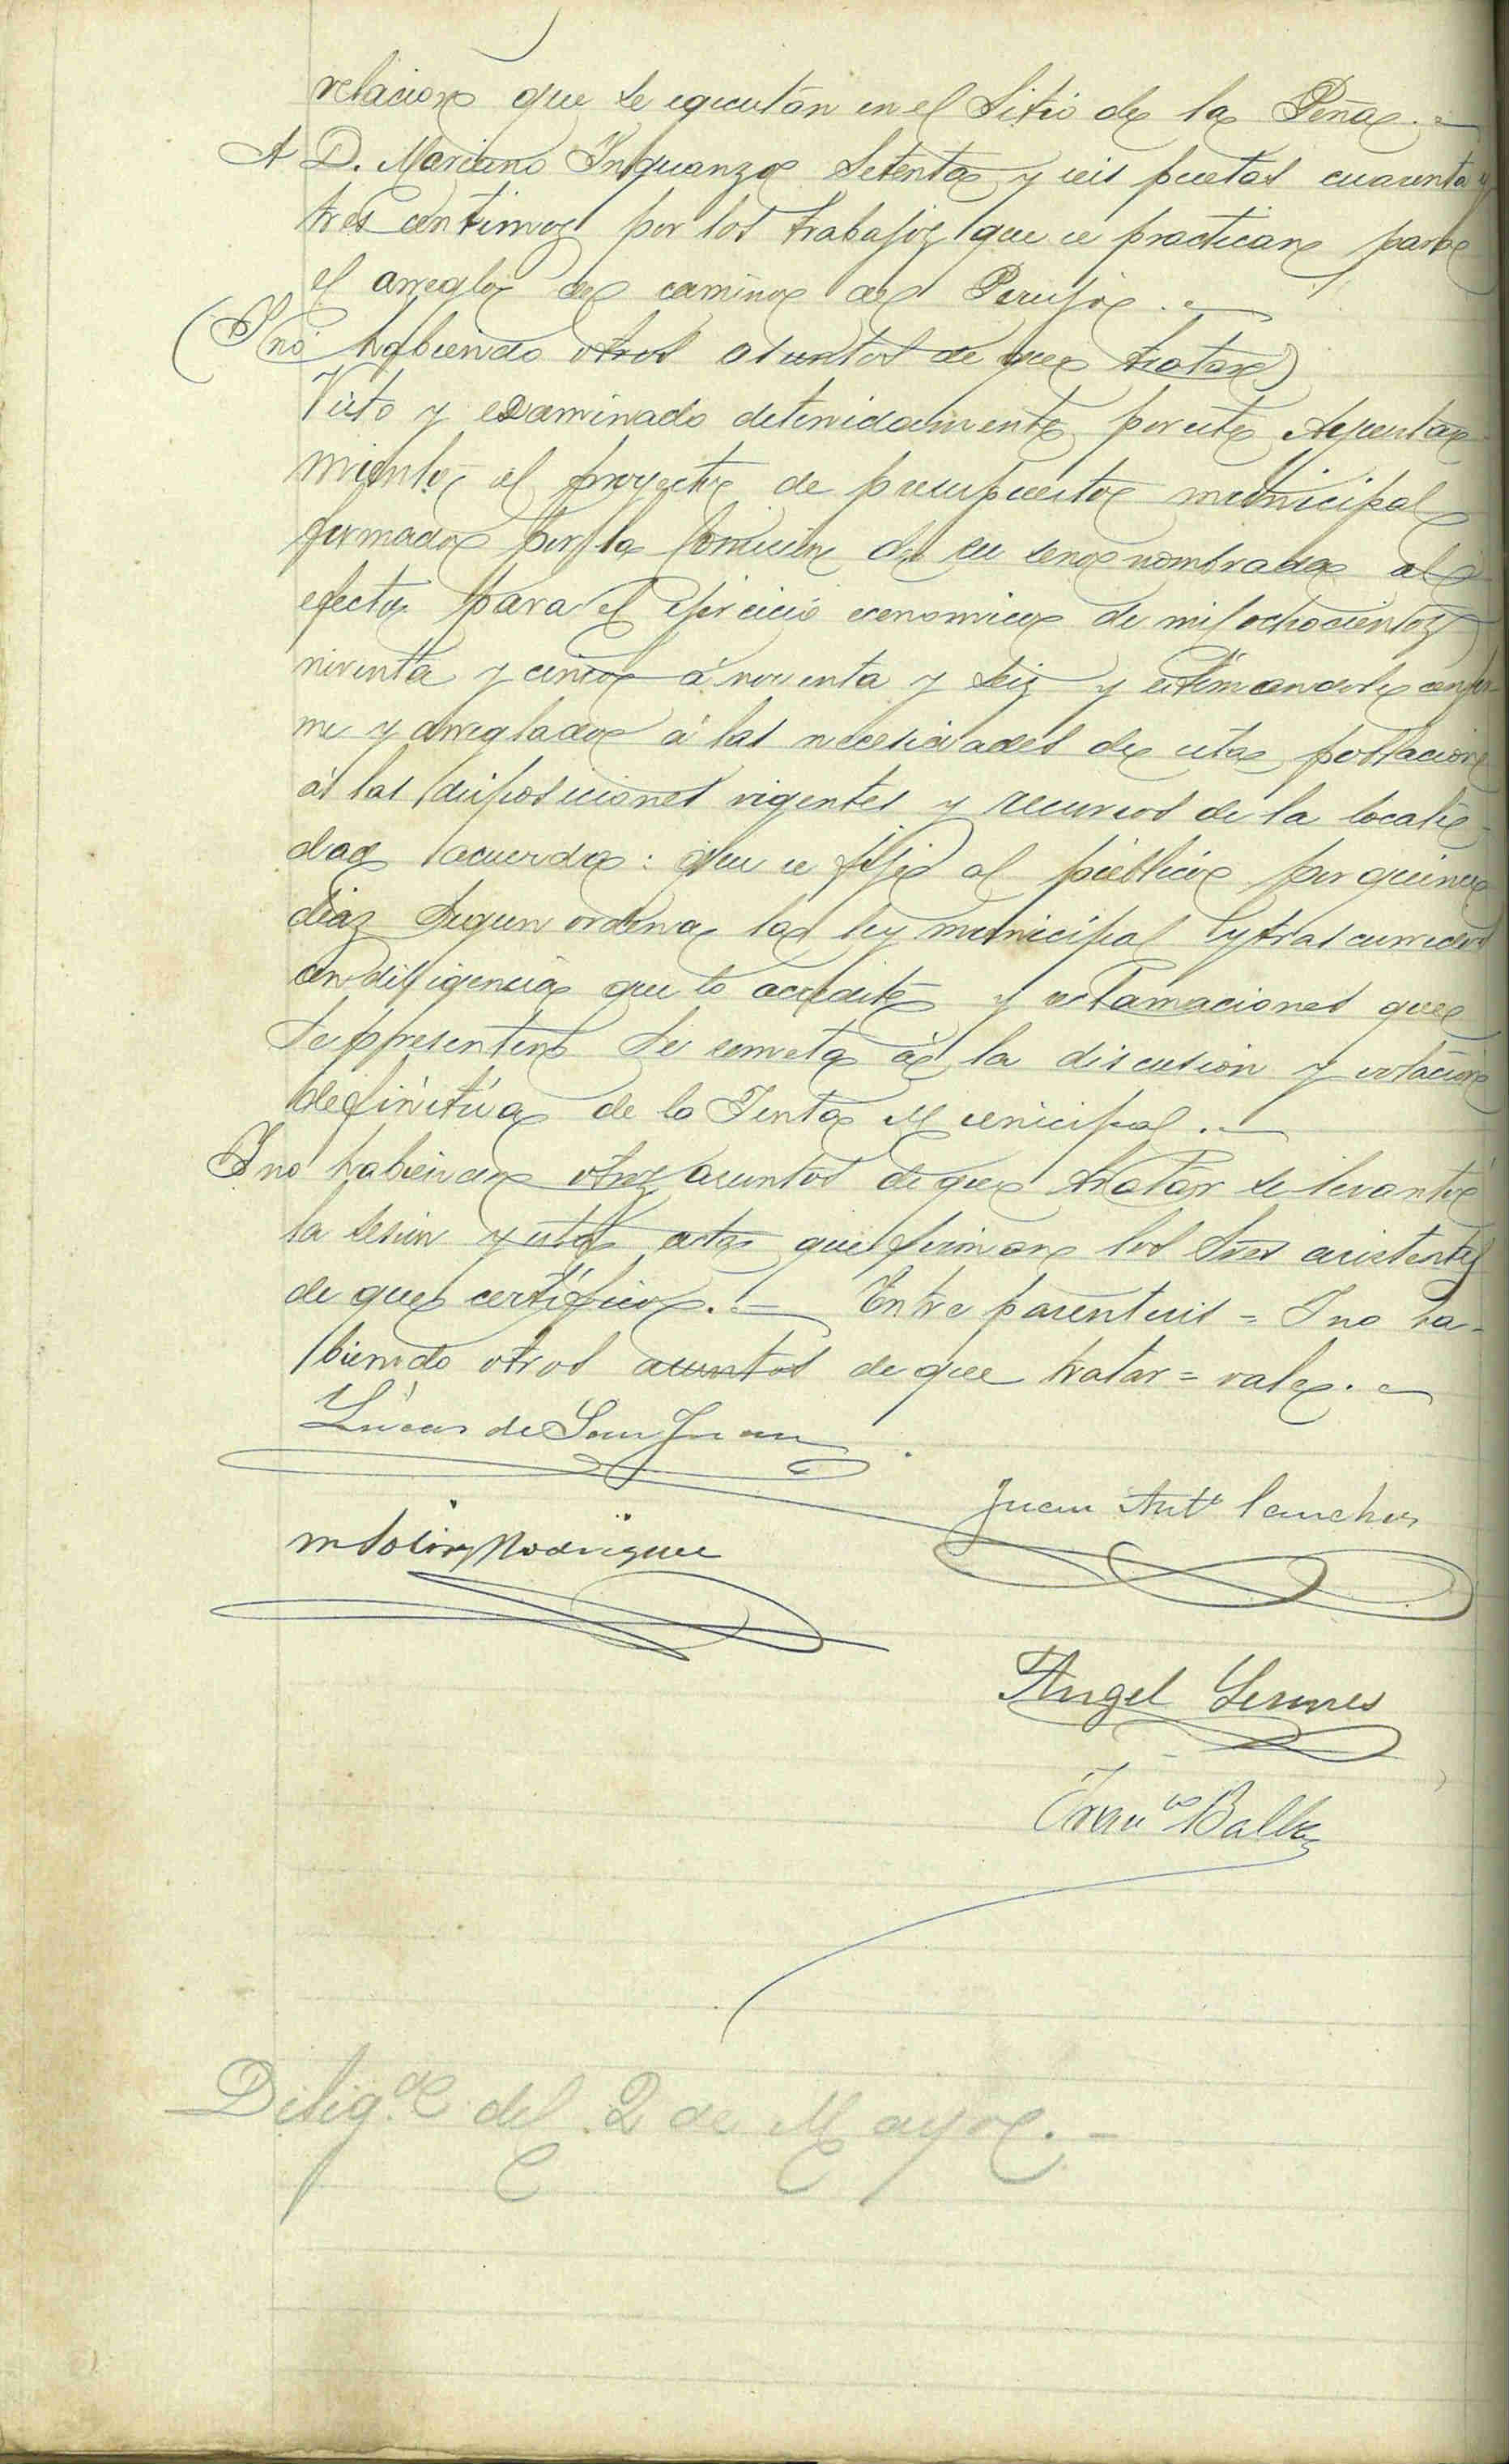 relacion que se egecutan en el Sitio de la Peña.=
A D. Mariano Inguanzo Setenta y seis pesetas cuarenta y
tres centimos por los trabajos que se practican para
el arreglo del camino del Perujo.=
(I no habiendo otros asuntos de que tratar)
Visto y examinado detenidamente por este Ayunta-
miento el proyecto de presupuesto municipal
formado por la Comision de su seno nombrada al
efecto para el Ejercicio economico de mil ochocientos
noventa y cinco á noventa y seis y estimandole confor-
me y arreglado á las necesidades de esta poblacion
á las disposiciones vigentes y recursos de la locali-
dad acuerda: que se fije al público por quince
dias segun ordena la ley municipal y trascurridos
con diligencia que lo acredite y reclamaciones que
se presenten se someta á la discusion y votacion
definitiva de la Junta Municipal.=
I no habiendo otros asuntos de que tratar se levantó
la sesion y esta acta que firman los Sres asistentes
de que certifico.= Entre parentesis = I no ha-
biendo otros asuntos de que tratar = vale.=
Lúcas de San Juan
Juan Antº Sanchez
Rodriguez
Angel
Franco Balbe
Diligª del 2 de Mayo.=